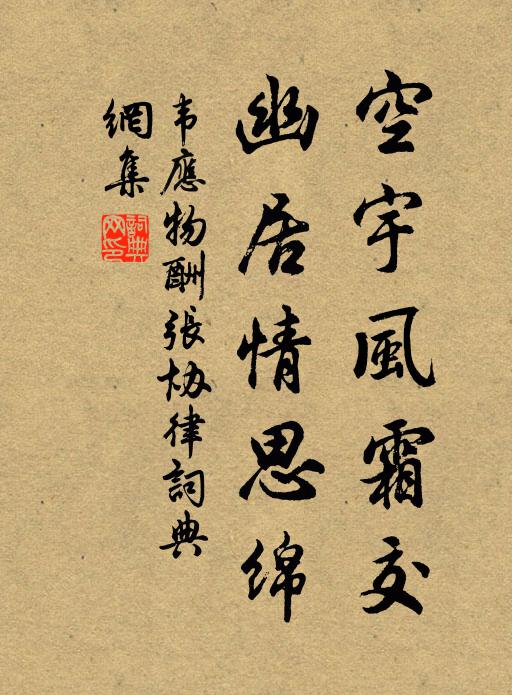 空宇風霜交
幽居情思綿
韦應物酬張协律詞典
網集
詞典
网印